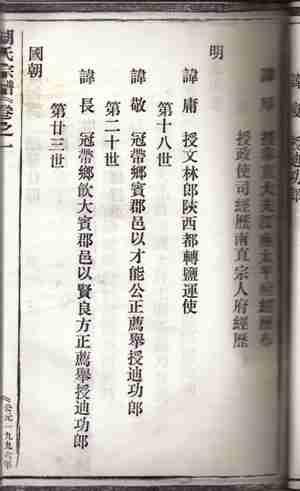 授政使司經歷南直宗人府經歷
明
諱庸 授文林郎陝西都轉鹽運使
第十八世
諱敬 冠帶鄉賓郡邑以才能公正薦舉授迪功郎
第二十世
諱長 冠帶鄉飲大賓郡邑以賢良方正薦舉授迪功郎
第廿三世
國朝
周氏宗譜 卷之一
公元一九九六年